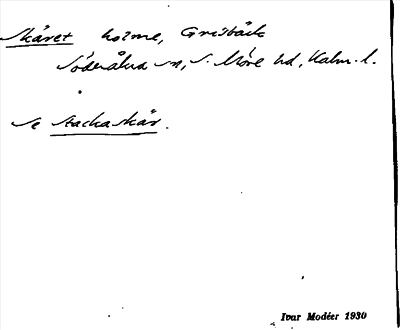 Skäret holme, Grisbäck
Söderåkra sn, S. Möre hd, Kalm. l.
Se Stackaskär.
Ivar Modéer 1930